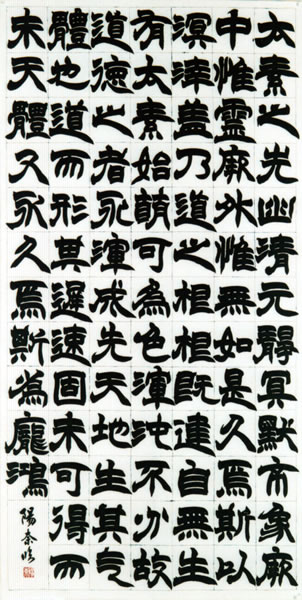 太素之先幽清元靜冥默帀象厥
中惟靈厥外惟無如是久焉斯以
溟涬蓋乃道之根根既建自無生
有太素始萌可為色渾沌不分故
道德之者永渾成先天地生其气
體也道而形其遲速固未可得而
未天體又永久焉斯為龐鴻